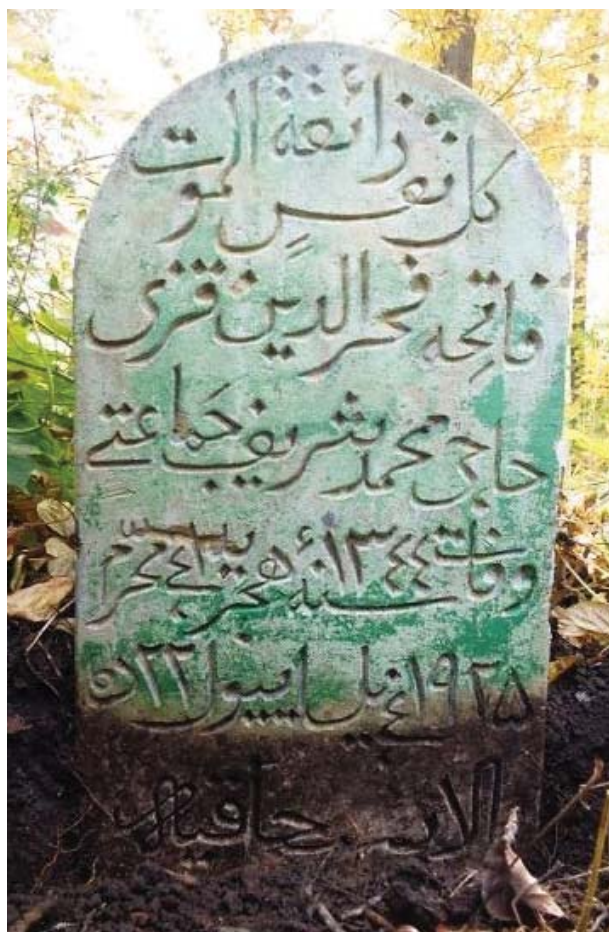 كل نفسِ ذائقة الموت
فاتحِه فخر الدين قزى
حاجى محمد شريف جماعتے
وفات سنهٔ ١٣٤٤ هجريه محرم
١٩٢٥ نچے يل اييول ٢٢ ده